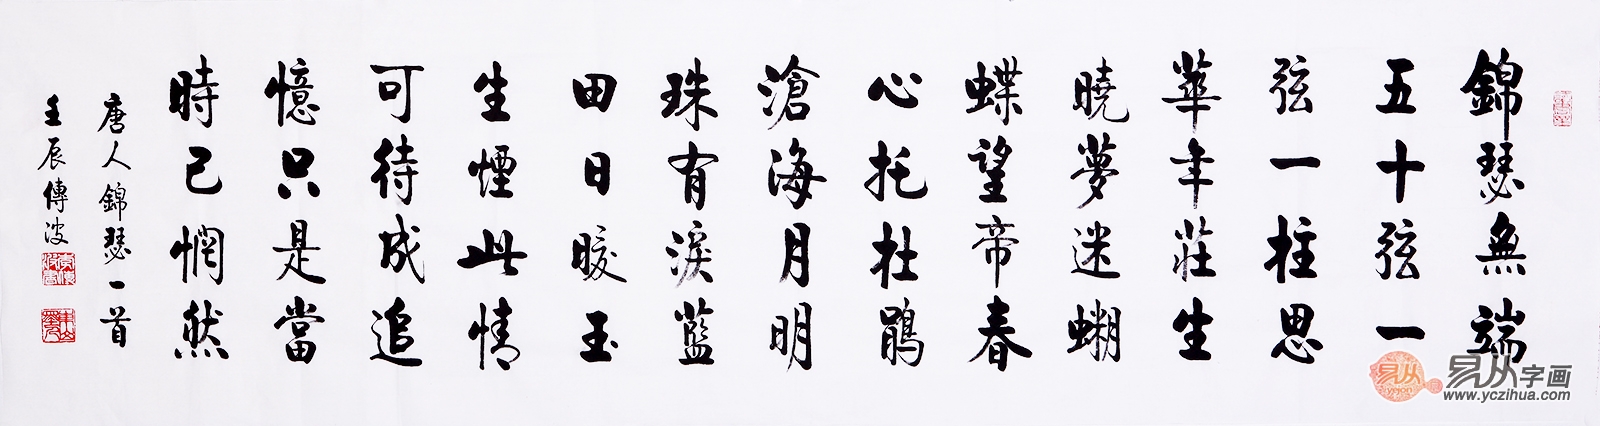 錦瑟無端
五十弦一
弦一柱思
華年莊生
曉夢迷蝴
蝶望帝春
心托杜鵑
滄海月明
珠有淚藍
田日暖玉
生煙此情
可待成追
憶只是當
時已惘然
唐人錦瑟一首
壬辰傳波
易从
易从字画
www.yczihua.com